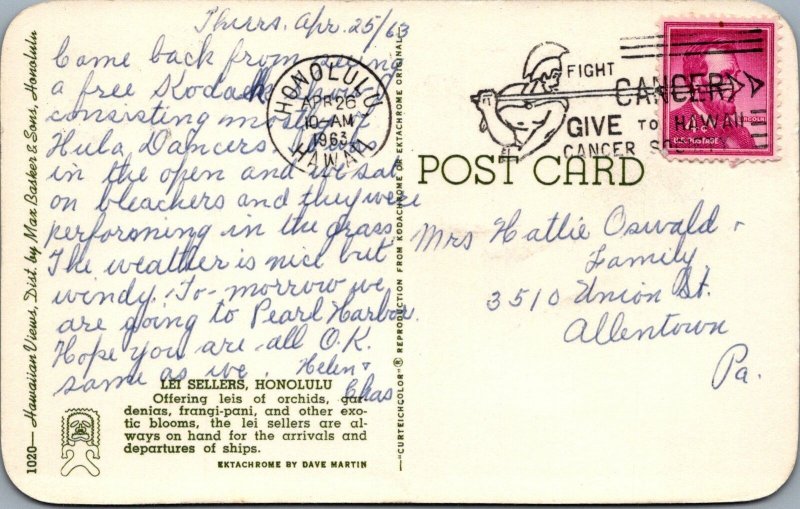 Thurs. Apr. 25/63
Came back from seeing
a free Kodak
consisting
Hula Dancers
in the open and we sat
on bleachers and they were
performing in the grass
The weather is nice but
windy. To-morrow we
are going to Pearl Harbor.
Hope you are all O.K.
same as we. Helen &
Chas
LEI SELLERS, HONOLULU
Offering leis of orchids, gar-
denias, frangi-pani, and other exo-
tic blooms, the lei sellers are al-
ways on hand for the arrivals and
departures of ships.
EKTACHROME BY DAVE MARTIN
1020—Hawaiian Views, Dist. by Max Basker & Sons, Honolulu
"CURTEICHCOLOR" ® REPRODUCTION FROM KODACHROME OR EKTACHROME ORIGINAL
HONOLULU
APR 26
10-AM
1963
HAWAII
FIGHT
CANCER
GIVE TO HAWAII
CANCER
LINCOLN
U.S. POSTAGE
POST CARD
Mrs Hattie Oswald &
Family
3510 Union St.
Allentown
Pa.